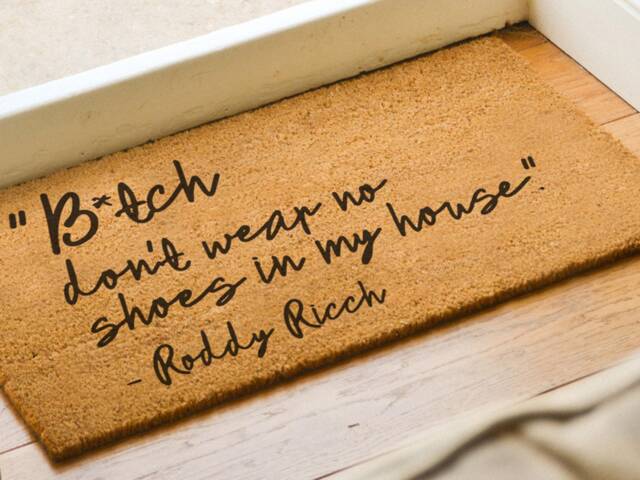 "B*tch
don't wear no
shoes in my house".
- Roddy Ricch